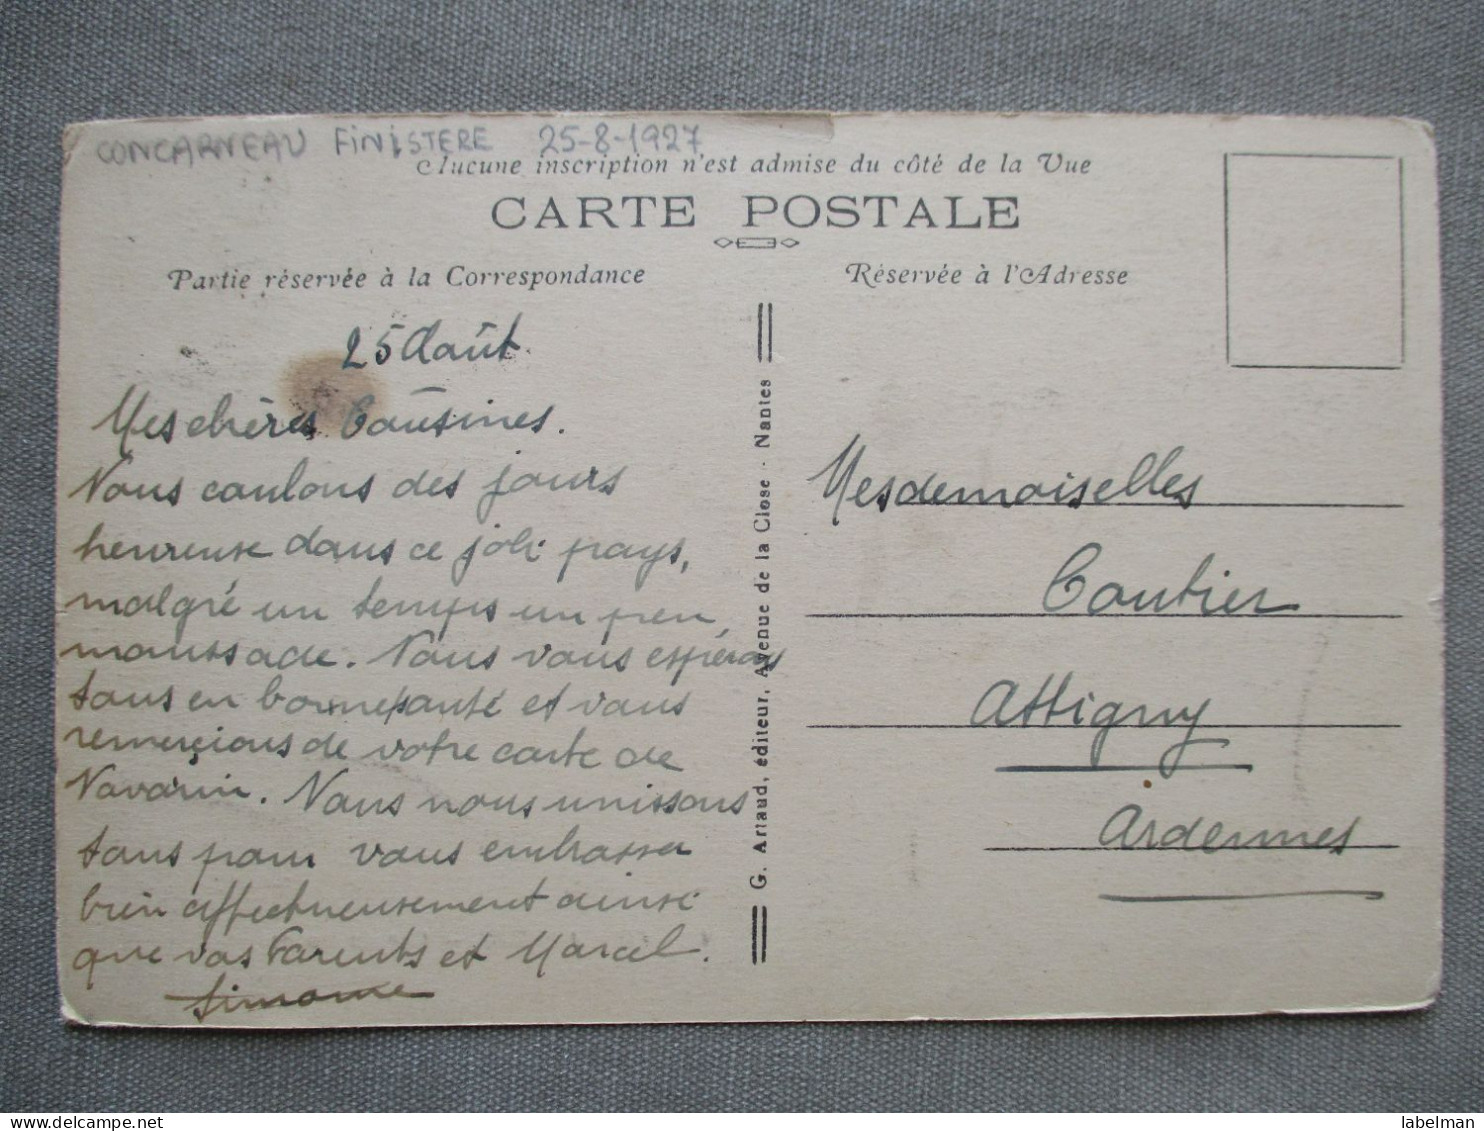 CONCARNEAU FINISTERE 25-8-1927
Aucune inscription n'est admise du côté de la Vue
CARTE POSTALE
Partie réservée à la Correspondance
Réservée à l'Adresse
25 Août
Mes chères Cousines.
Nous coulons des jours
heureuse dans ce joli pays,
malgré un temps un peu
maussade. Nous vous espérons
tous en bonne santé et vous
remerçions de votre carte de
Navarin. Nous nous unissons
tous pour vous embrasser
bien affectueusement ainsi
que vos Parents et Marcel.
Simone
G. Artaud, éditeur, Avenue de la Close - Nantes
Mesdemoiselles
Coutier
Attigny
Ardennes
https://www.delcampe.net
labelman